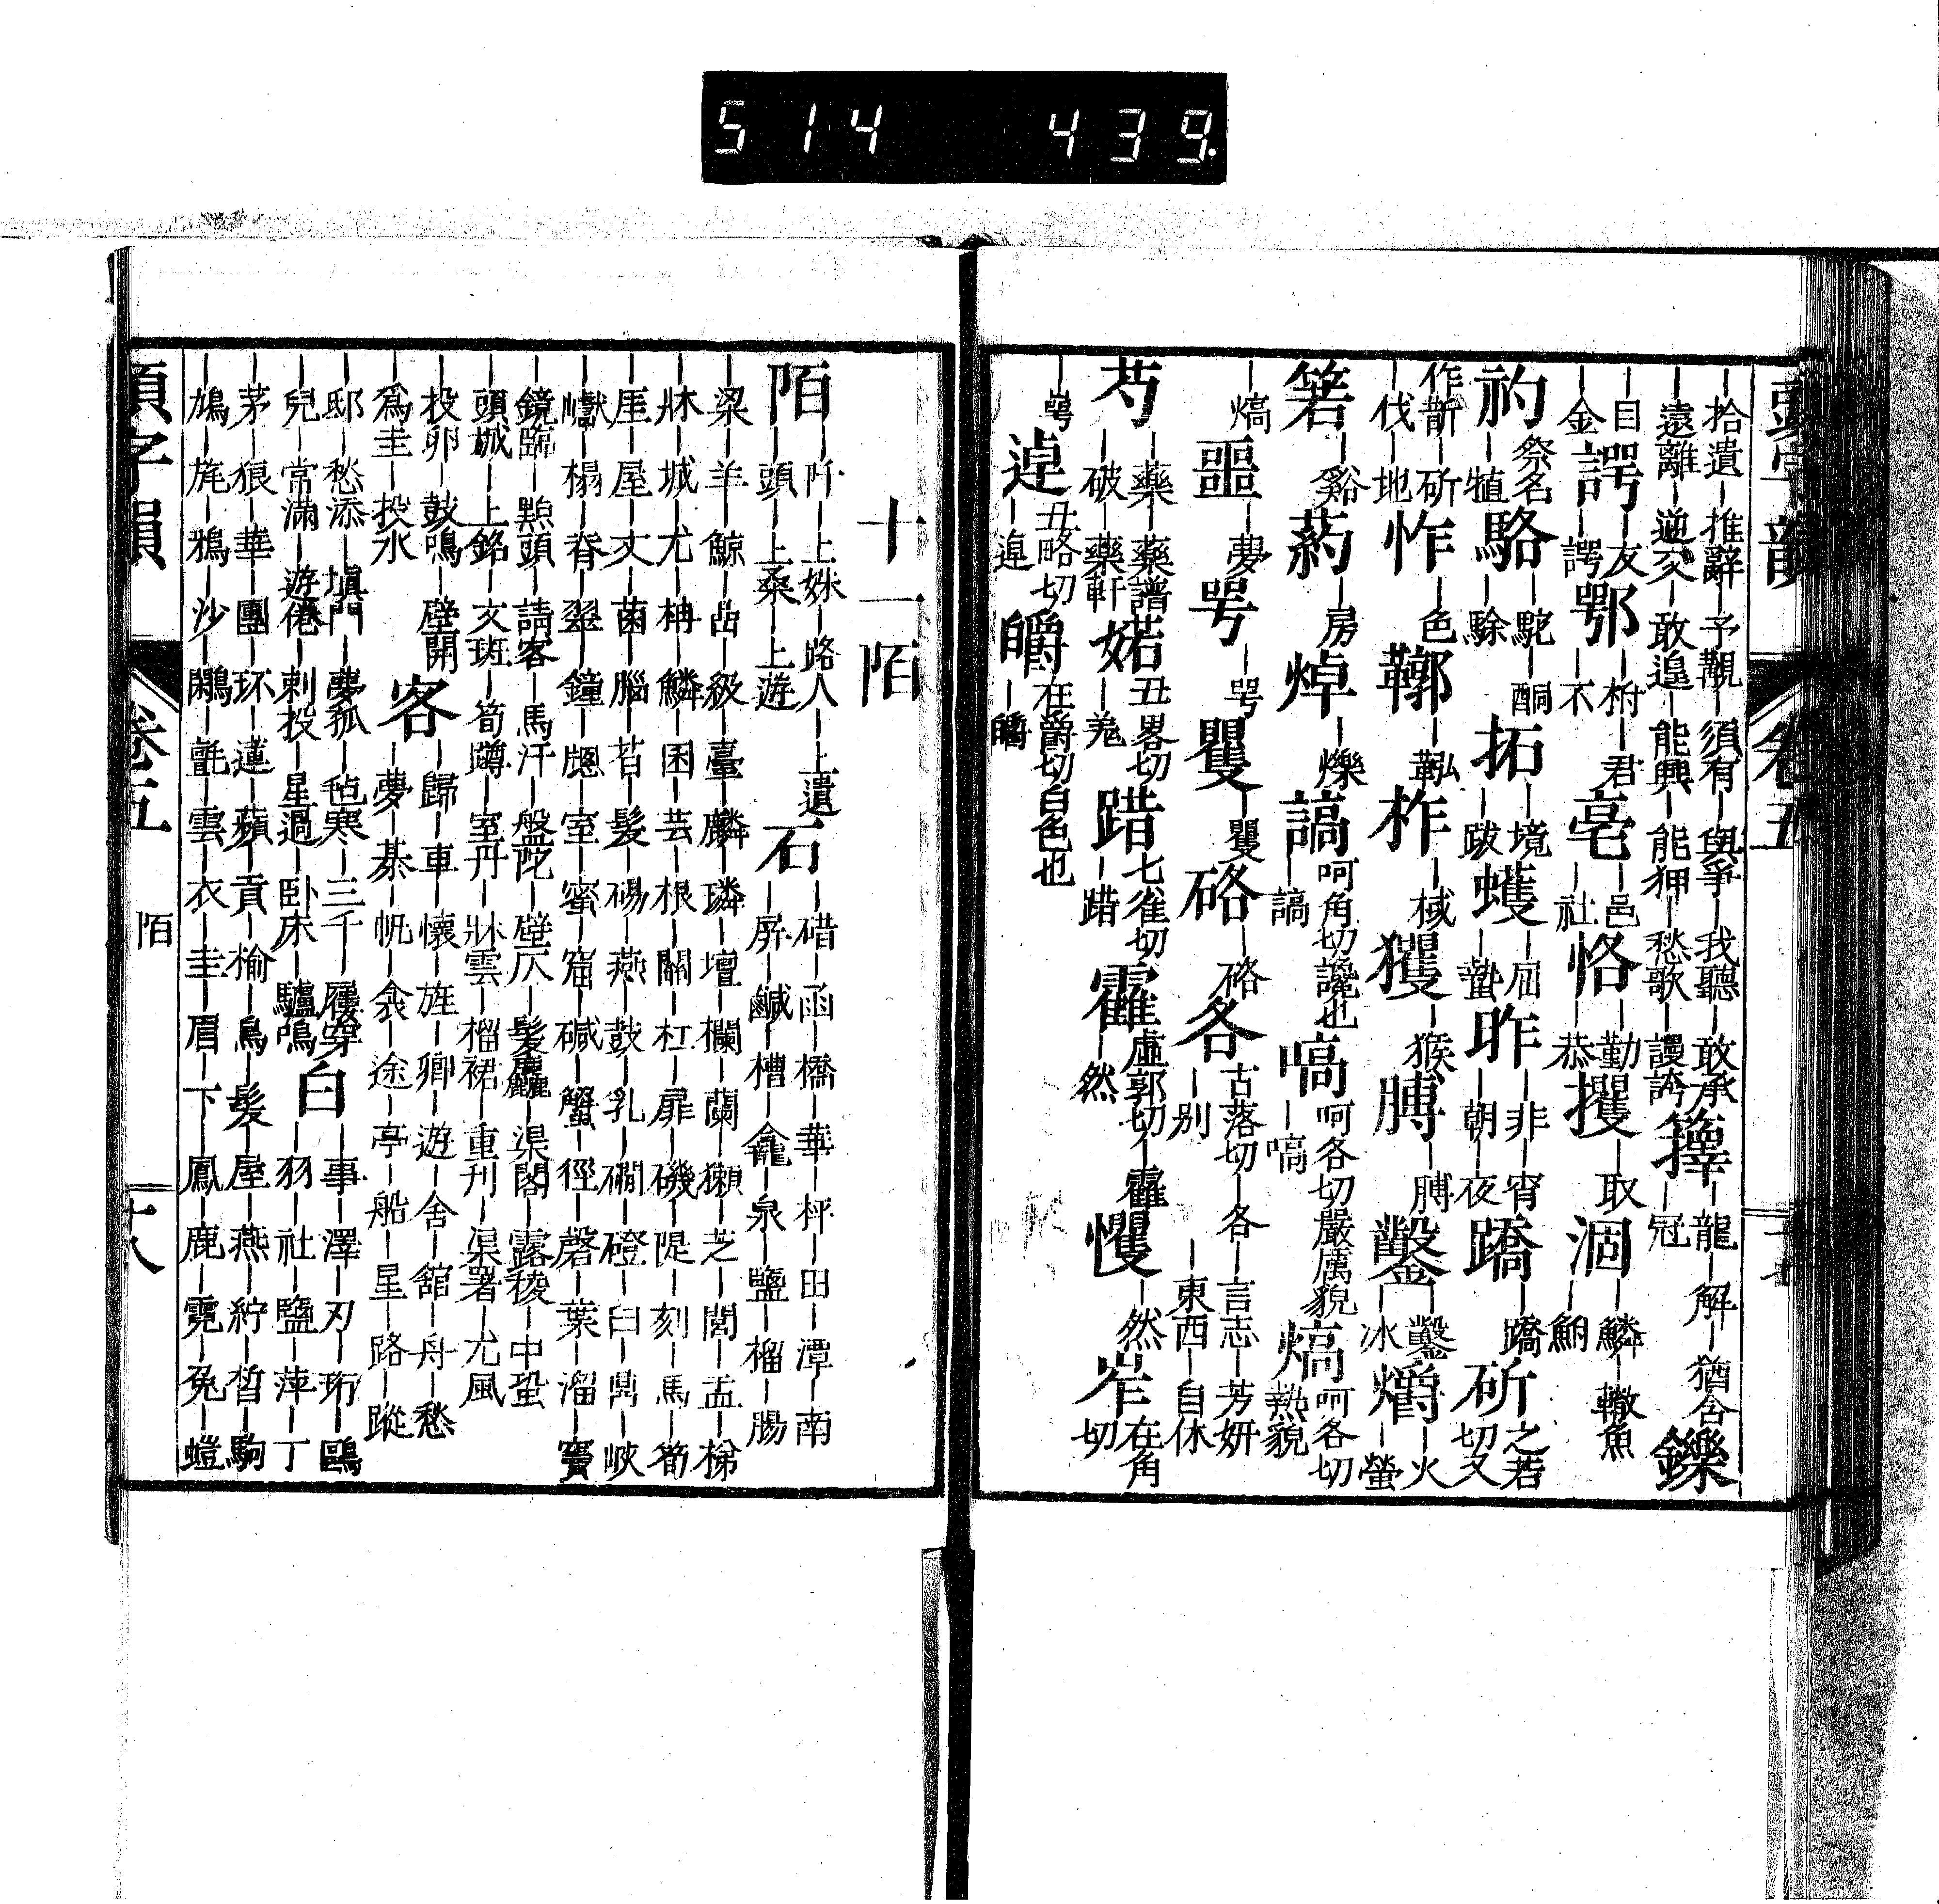 514 439.
頭字韻 卷五
拾遺｜推辭｜予觀｜須有｜與爭｜我聽｜敢承
遠離｜逆交｜敢遑｜能興｜能狎｜愁歌｜謾誇
籜｜龍｜解｜猶含
｜冠
鑠
｜自
｜金
諤｜友
｜諤
鄂｜柎｜君
｜不
亳｜邑
｜社
恪｜勤
｜恭
攫｜取
涸｜鱗｜轍魚
｜鮒
礿祭名
｜犆
駱｜駝｜酮
｜駼
拓｜境
｜跋
蠖｜屈
｜蟄
昨｜非｜宵
｜朝｜夜
蹻｜蹻
斫之若
切又
作斮｜斫
｜伐｜地
怍｜色
鞹｜鞃
柞｜棫
玃｜猴
膊｜膊
鑿｜鑿
｜冰
爝｜火
｜螢
箬｜谿
葯｜房
焯｜爍
謞呵角切讒也
｜謞
嗃呵各切嚴厲貌
｜嗃
熇呵各切
熱貌
｜熇
噩｜夢
咢｜咢
矍｜矍
硌｜硌
各古落切｜各｜言志｜芳妍
｜別｜東西｜自休
芍｜藥｜藥譜
｜破｜藥軒
婼丑畧切
｜羌
踖七雀切
｜踖
霍虛郭切｜霍
｜然
戄｜然
岝在角
切
｜崿
逴丑略切
｜遑
皭在爵切白色也
｜皭
十一陌
陌｜阡｜上姝｜路人｜上遺
｜頭｜上桑｜上遊
石｜碏｜函｜橋｜華｜枰｜田｜潭｜南
｜屏｜鹹｜槽｜龕｜泉｜鹽｜榴｜腸
｜梁｜羊｜鯨｜齒｜級｜臺｜麟｜璘｜壇｜欄｜蘭｜獺｜芝｜閭｜盂｜梯
｜牀｜城｜尤｜柟｜鱗｜困｜芸｜根｜關｜杠｜扉｜磯｜隄｜刻｜馬｜筍
｜厓｜屋｜丈｜菌｜腦｜苔｜髮｜碭｜燕｜鼓｜乳｜磵｜磴｜臼｜鼎｜峽
｜巘｜榻｜脊｜翠｜鐘｜牕｜室｜蜜｜窟｜碱｜蟹｜徑｜磬｜葉｜溜｜竇
｜鏡臨｜點頭｜請客｜馬汗｜盤陀｜壁仄｜髮麤｜渠閣｜露稜｜中蛩
｜頭城｜上銘｜文斑｜筍蹲｜室丹｜牀雲｜榴裙｜重刊｜渠署｜尤風
｜投卵｜鼓鳴｜壁開
｜爲圭｜投水
客｜歸｜車｜懷｜旌｜卿｜遊｜舍｜舘｜舟｜愁
｜夢｜棊｜帆｜衾｜途｜亭｜船｜星｜路｜蹤
｜邸｜愁添｜塡門｜夢孤｜氊寒｜三千｜屨穿
｜兒｜常滿｜遊倦｜刺投｜星過｜臥床｜驢鳴
白｜事｜澤｜刃｜珩｜鷗
｜羽｜社｜鹽｜萍｜丁
｜茅｜狼｜華｜團｜环｜蓮｜蘋｜貢｜榆｜鳥｜髮｜屋｜燕｜紵｜皙｜駒
｜鳩｜旄｜鴉｜沙｜鷴｜氈｜雲｜衣｜圭｜眉｜下｜鳳｜鹿｜霓｜兔｜螘
頭字韻 卷五 陌 十八